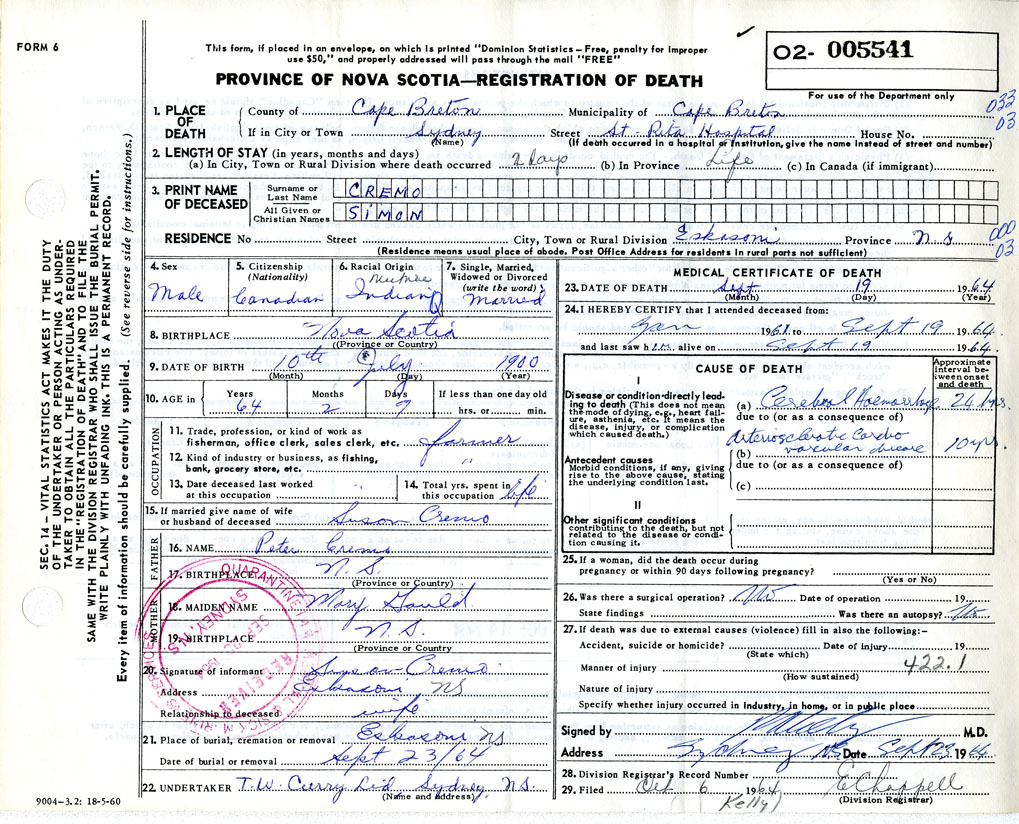 FORM 6
This form, if placed in an envelope, on which is printed "Dominion Statistics – Free, penalty for improper
use $50," and properly addressed will pass through the mail "FREE"
PROVINCE OF NOVA SCOTIA—REGISTRATION OF DEATH
02- 005541
For use of the Department only
033
03
1. PLACE OF DEATH
County of Cape Breton Municipality of Cape Breton
If in City or Town Sydney Street St. Rita Hospital House No.
(Name) (If death occurred in a hospital or institution, give the name instead of street and number)
2. LENGTH OF STAY (in years, months and days)
(a) In City, Town or Rural Division where death occurred 2 days (b) In Province Life (c) In Canada (if immigrant)
3. PRINT NAME OF DECEASED
Surname or Last Name CREMO
All Given or Christian Names SIMON
RESIDENCE No Street City, Town or Rural Division Eskasoni Province N.S
000
03
(Residence means usual place of abode. Post Office Address for residents in rural parts not sufficient)
4. Sex Male
5. Citizenship (Nationality) Canadian
6. Racial Origin Micmac Indian
7. Single, Married, Widowed or Divorced (write the word) Married
8. BIRTHPLACE Nova Scotia
(Province or Country)
9. DATE OF BIRTH 10th July 1900
(Month) (Day) (Year)
10. AGE in Years 64 Months 2 Days 9 If less than one day old hrs. or min.
OCCUPATION
11. Trade, profession, or kind of work as
fisherman, office clerk, sales clerk, etc. farmer
12. Kind of industry or business, as fishing,
bank, grocery store, etc. "
13. Date deceased last worked
at this occupation
14. Total yrs. spent in
this occupation life
15. If married give name of wife
or husband of deceased Susan Cremo
FATHER
16. NAME Peter Cremo
17. BIRTHPLACE N.S.
(Province or Country)
MOTHER
18. MAIDEN NAME Mary Gould
19. BIRTHPLACE N.S.
(Province or Country)
20. Signature of informant Susan Cremo
Address Eskasoni NS
Relationship to deceased wife
21. Place of burial, cremation or removal Eskasoni NS
Date of burial or removal Sept 23/64
22. UNDERTAKER T.W. Curry Ltd, Sydney NS.
(Name and address)
9004–3.2: 18-5-60
QUARANTINE
SYDNEY, N.S.
RECEIVED
SERVICES
MEDICAL CERTIFICATE OF DEATH
23. DATE OF DEATH Sept 19 1964
(Month) (Day) (Year)
24. I HEREBY CERTIFY that I attended deceased from:
Jan 1961 to Sept 19 1964
and last saw him alive on Sept 19 1964
CAUSE OF DEATH
Approximate interval between onset and death
I
Disease or condition directly leading to death (This does not mean the mode of dying, e.g., heart failure, asthenia, etc. It means the disease, injury, or complication which caused death.)
(a) Cerebral Haemorrhage 24 hrs.
due to (or as a consequence of)
Antecedent causes
Morbid conditions, if any, giving rise to the above cause, stating the underlying condition last.
Arteriosclerotic Cardio
(b) vascular disease 10 yrs.
due to (or as a consequence of)
(c)
II
Other significant conditions
contributing to the death, but not related to the disease or condition causing it.
25. If a woman, did the death occur during
pregnancy or within 90 days following pregnancy?
(Yes or No)
26. Was there a surgical operation? No Date of operation 19
State findings Was there an autopsy? No
27. If death was due to external causes (violence) fill in also the following:–
Accident, suicide or homicide? Date of injury 19
(State which)
422.1
Manner of injury
(How sustained)
Nature of injury
Specify whether injury occurred in Industry, in home, or in public place
Signed by M.D.
Address Sydney NS Date Sept 23 1964
28. Division Registrar's Record Number
29. Filed Oct 6 1964 E Chappell
(Division Registrar)
Kelly)
SEC. 14 – VITAL STATISTICS ACT MAKES IT THE DUTY
OF THE UNDERTAKER OR PERSON ACTING AS UNDER-
TAKER TO OBTAIN ALL THE PARTICULARS REQUIRED
IN THE "REGISTRATION OF DEATH" AND TO FILE THE
SAME WITH THE DIVISION REGISTRAR WHO SHALL ISSUE THE BURIAL PERMIT.
WRITE PLAINLY WITH UNFADING INK. THIS IS A PERMANENT RECORD.
Every item of information should be carefully supplied. (See reverse side for instructions.)